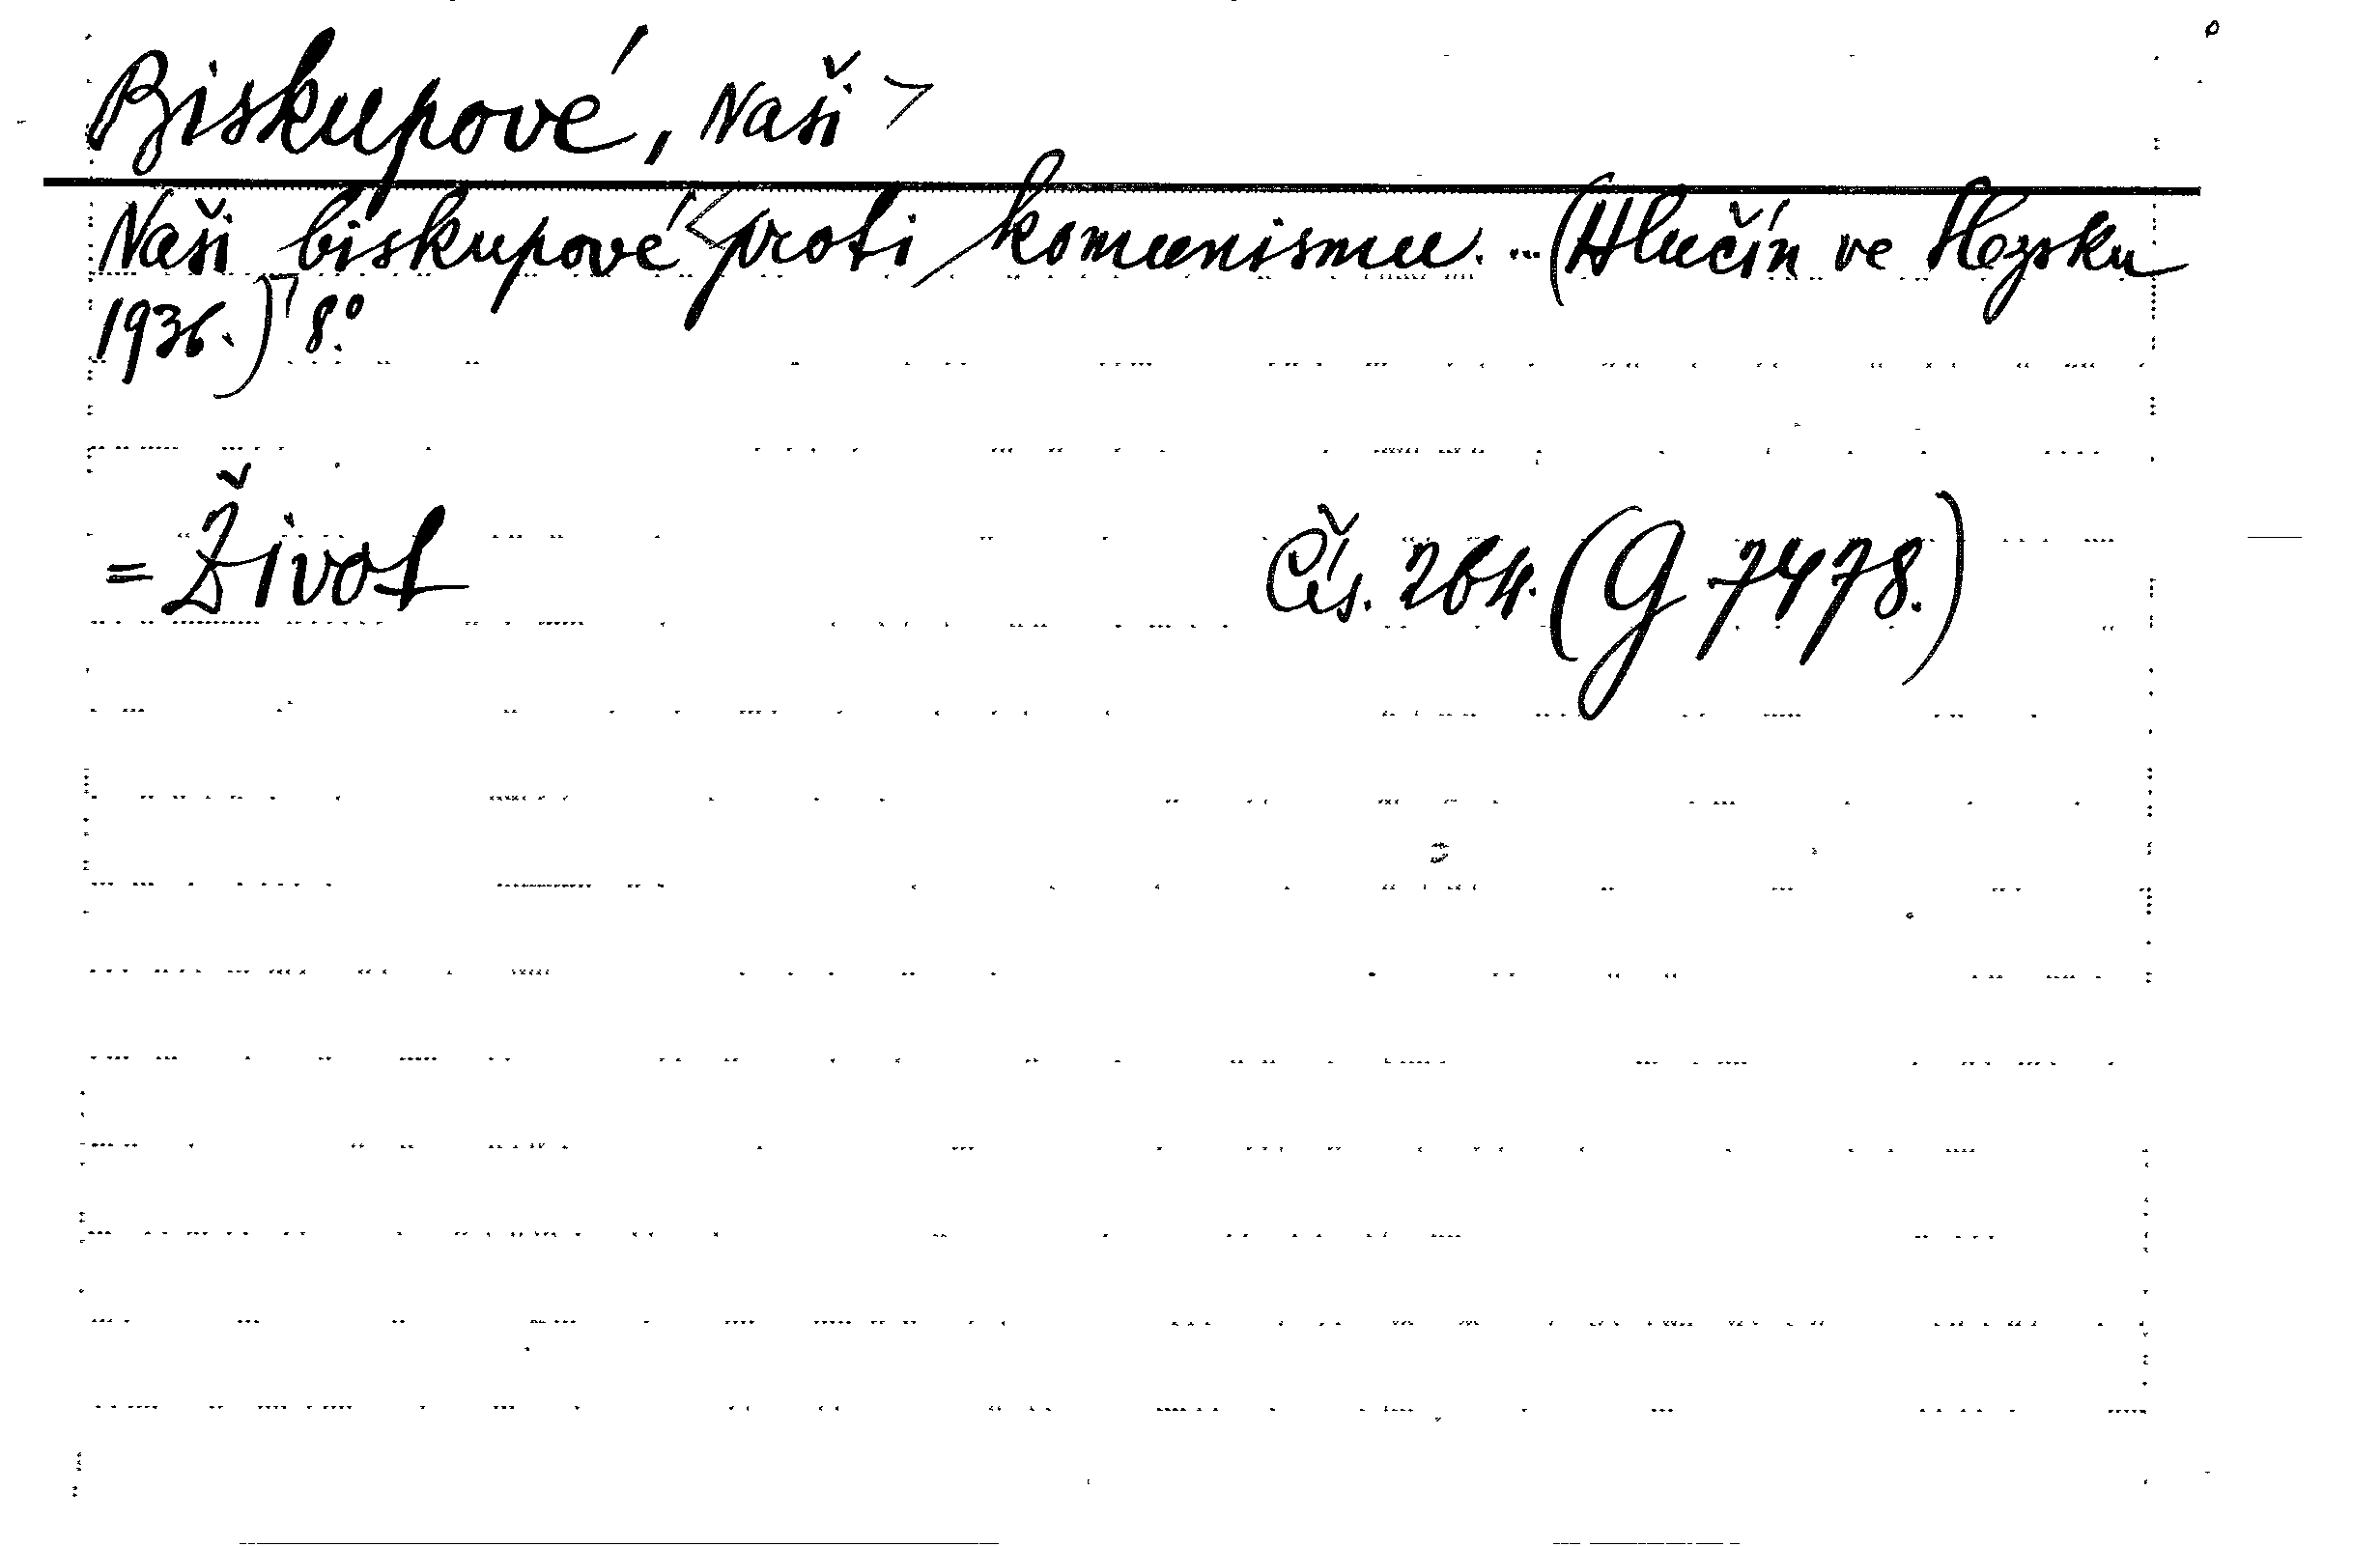 Biskupové, Naši >
Naši biskupové < proti komunismu... (Hlučín ve Slezsku
1936.) 8°.
= Život Čís. 264. (G 7478.)